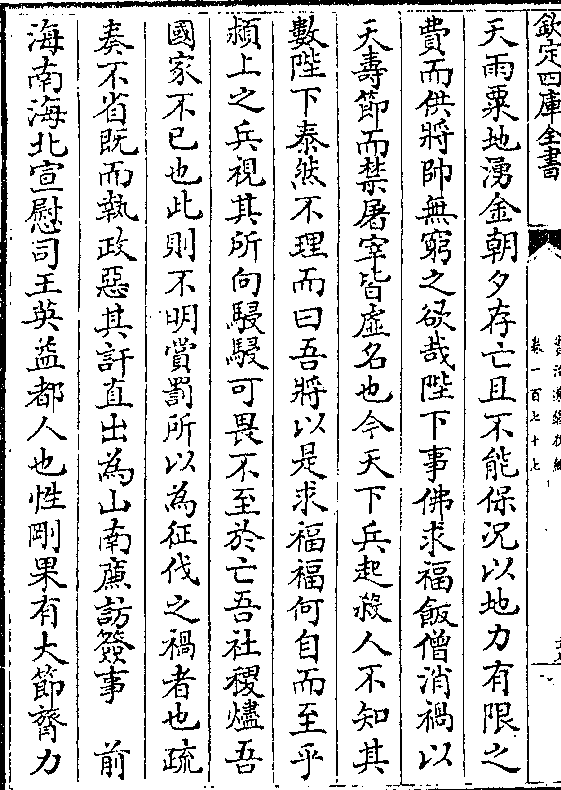 欽定四庫全書
卷一百七十七
天雨粟地湧金朝夕存亡且不能保況以地力有限之
費而供將帥無窮之欲哉陛下事佛求福飯僧消禍以
天壽節而禁屠宰皆虛名也今天下兵起殺人不知其
數陛下泰然不理而曰吾將以是求福福何自而至乎
頴上之兵視其所向駸駸可畏不至於亡吾社稷燼吾
國家不已也此則不明賞罰所以為征伐之禍者也疏
奏不省既而執政惡其訐直出為山南廉訪簽事　前
海南海北宣慰司王英益都人也性剛果有大節膂力